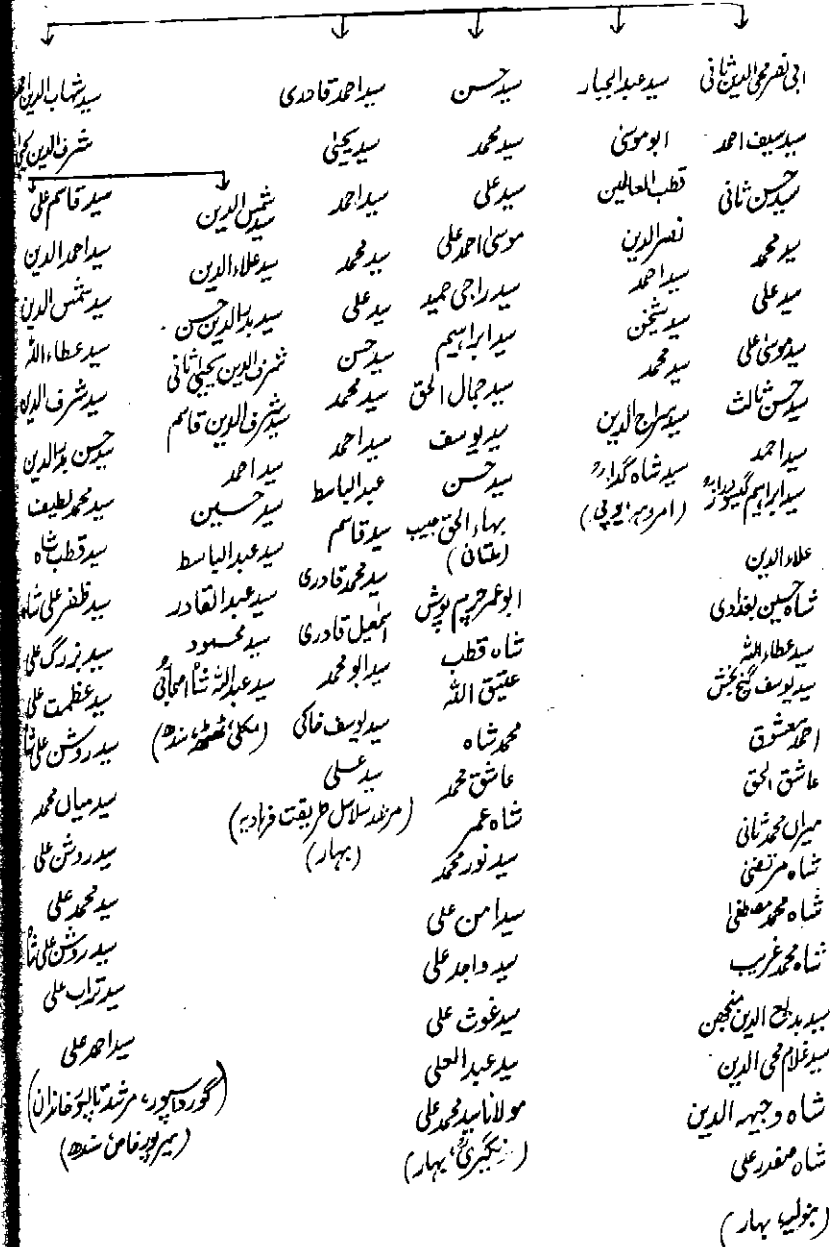 ابی نصر محی الدین ثانی
سید سیف احمد
سید حسن ثانی
سید محمد
سید علی
سید موسیٰ علی
سید حسن ثالث
سید احمد
سید ابراہیم گیسودراز
علاءالدین
شاہ حسین بغدادی
سید عطاء اللہ
سید یوسف گنج بخش
احمد معشوق
عاشق الحق
میراں محمد ثانی
شاہ مرتضیٰ
شاہ محمد مصطفیٰ
شاہ محمد غریب
سید بدیع الدین منجھن
سید غلام محی الدین
شاہ وجیہہ الدین
شاہ صفدر علی
(بہار)
سید عبدالجبار
ابو موسیٰ
قطب العالمین
نصر الدین
سید احمد
سید شیخن
سید محمد
سید سراج الدین
سید شاہ گدارؒ
(امروہہ، یوپی)
سید حسن
سید محمد
سید علی
موسیٰ احمد علی
سید راجی حمید
سید ابراہیم
سید جمال الحق
سید یوسف
سید حسن
بہاء الحق حبیب
(ملتان)
ابو عمر چرم پوش
شاہ قطب
عتیق اللہ
محمد شاہ
عاشق محمد
شاہ عمر
سید نور محمد
سید امن علی
سید واجد علی
سید غوث علی
سید عبدالعلی
مولانا سید محمد علی
(مونگیریؒ، بہار)
سید احمد قادری
سید یحیٰی
سید احمد
سید محمد
سید علی
سید حسن
سید محمد
سید احمد
عبدالباسط
سید قاسم
سید محمد قادری
اسمٰعیل قادری
سید ابو محمد
سید یوسف خاکی
سید علی
(مرشد سلاسل طریقت فرہادیہ)
(بہار)
سید شہاب الدین احمد
شرف الدین یحییٰ
سید شمس الدین
سید علاءالدین
سید بدرالدین حسن
شرف الدین یحییٰ ثانی
سید شرف الدین قاسم
سید احمد
سید حسین
سید عبدالباسط
سید عبدالقادر
سید محمود
سید عبداللہ شاہ اصحابیؒ
(مکلی، ٹھٹھہ، سندھ)
سید قاسم علی
سید احمد الدین
سید شمس الدین
سید عطاء اللہ
سید شرف الدین
سید حسن بدرالدین
سید محمد لطیف
سید قطب شاہ
سید ظفر علی شاہ
سید بزرگ علی
سید عظمت علی
سید روشن علی شاہ
سید میاں محمد
سید روشن علی
سید محمد علی
سید روشن علی شاہ
سید تراب علی
سید احمد علی
(گورداسپور، مرشد تالپور خاندان)
(میرپور خاص سندھ)